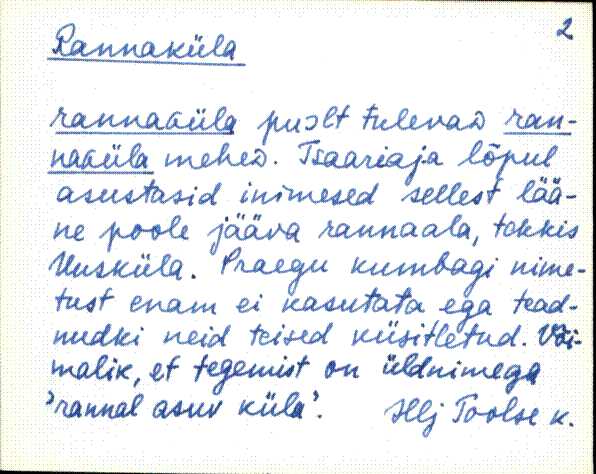 2
Rannaküla
rannaGüla puɔlt tulevaD ran-
naGüla meheD. Tsaariaja lõpul
asustasid inimesed sellest lää-
ne poole jääva rannaala, tekkis
Uusküla. Praegu kumbagi nime-
tust enam ei kasutata ega tead-
nudki neid teised küsitletud. Või-
malik, et tegemist on üldnimega
'rannal asuv küla'. Hlj Toolse k.